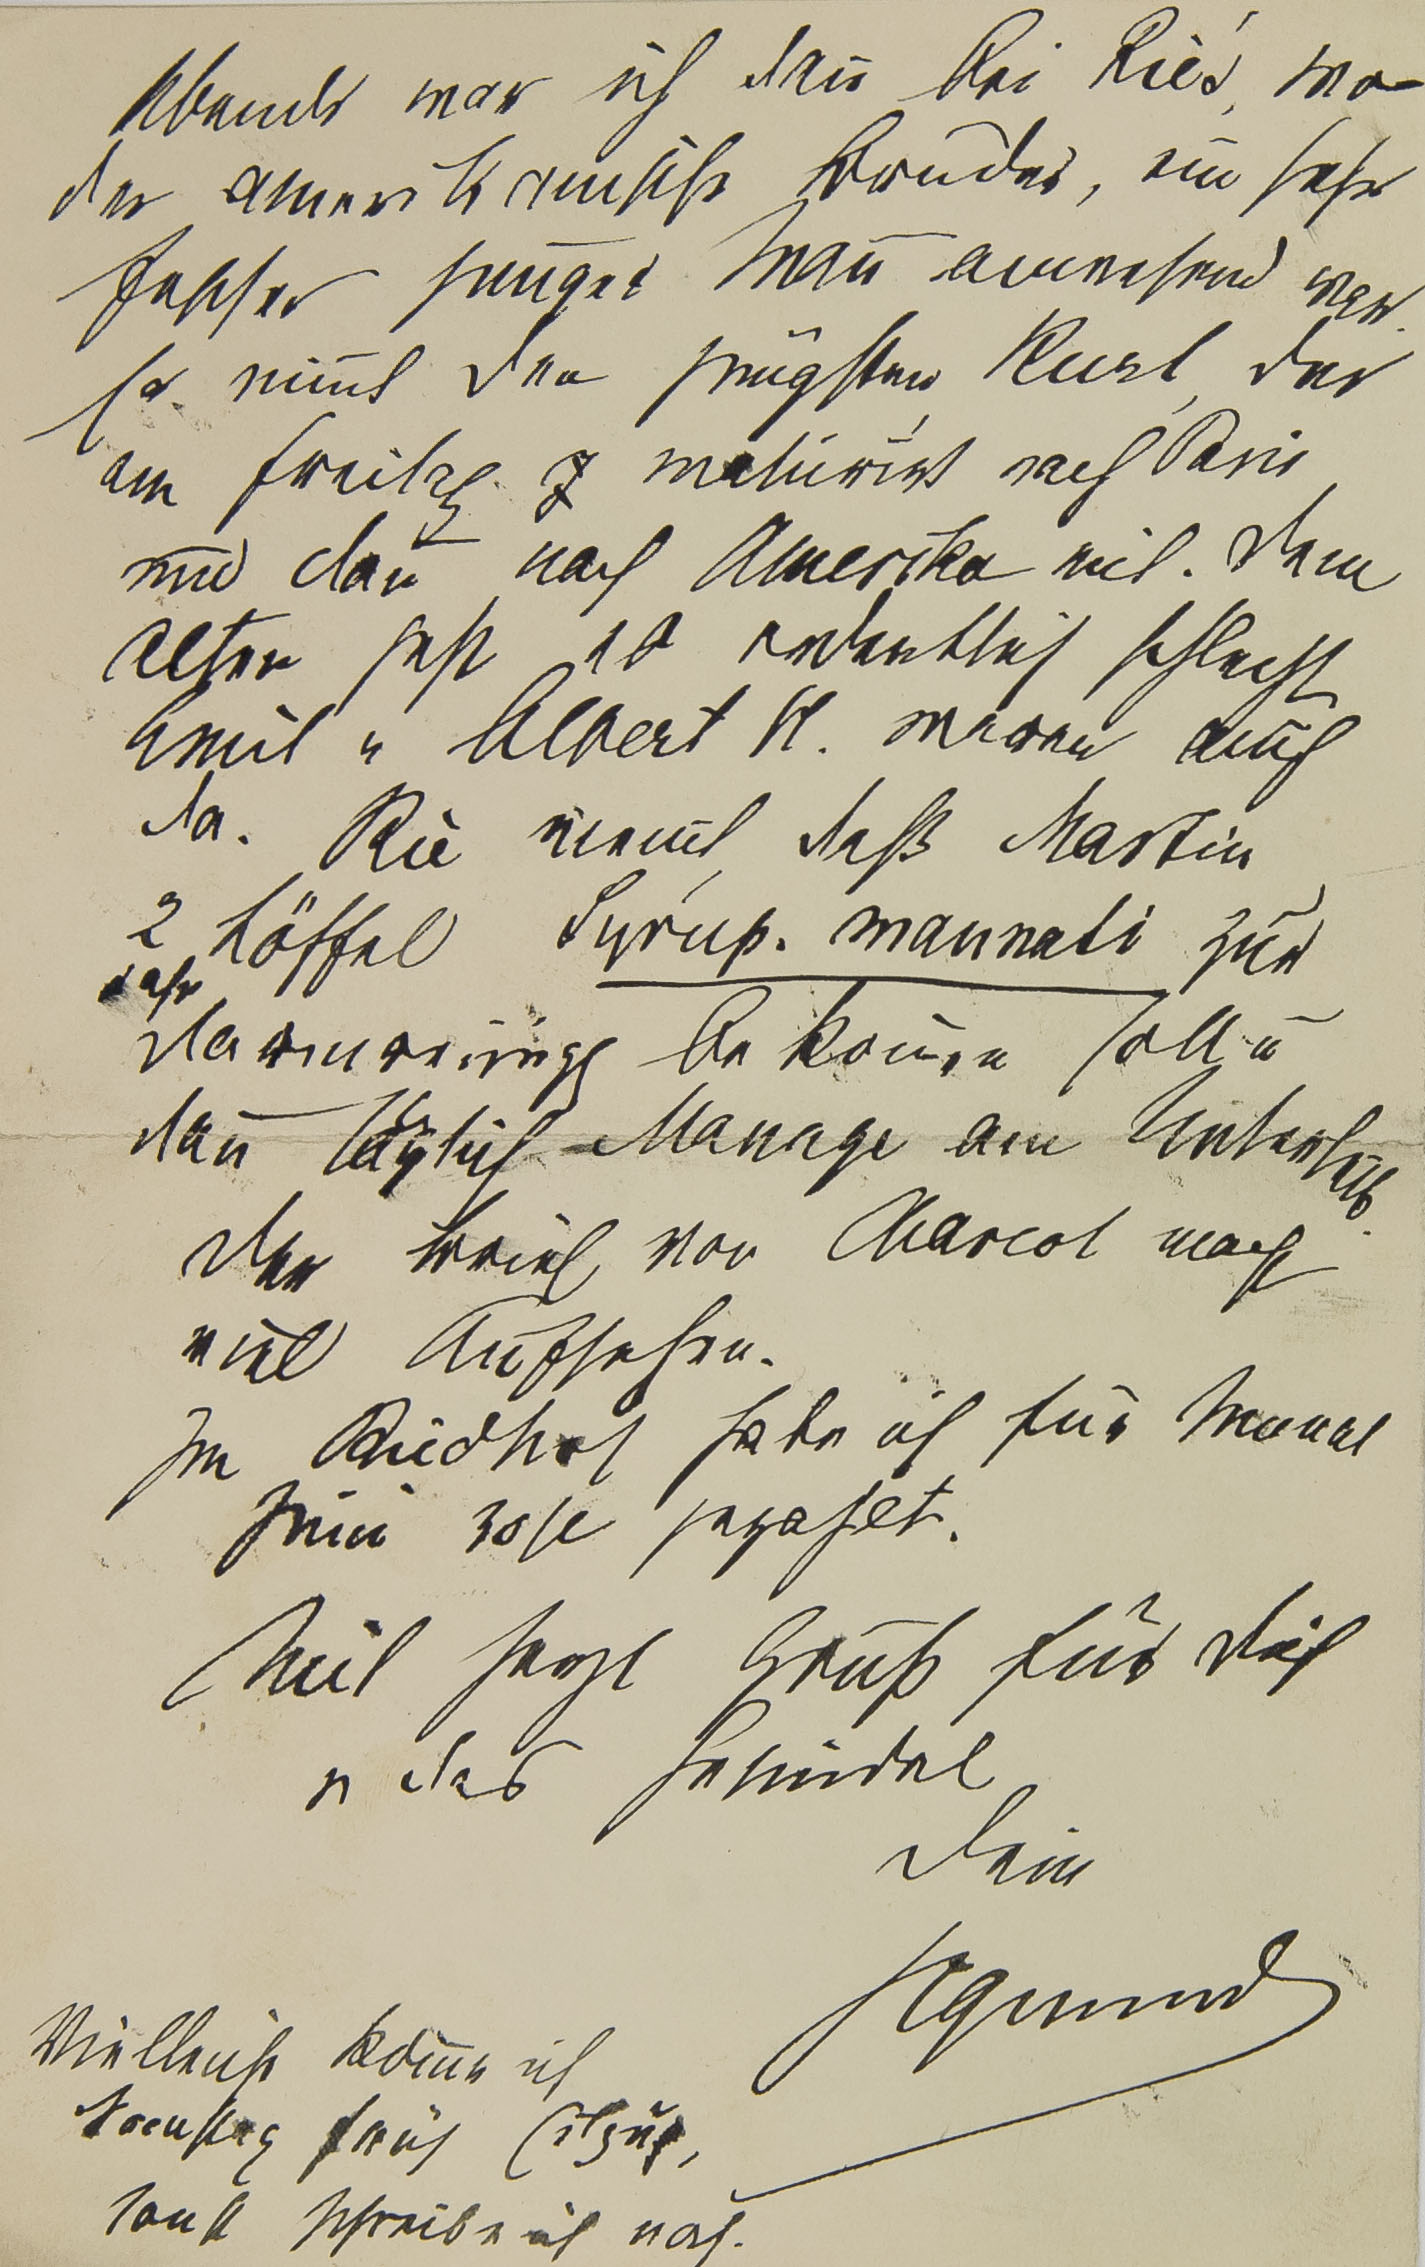 Abends war ich dan̄ bei Rie's, wo
der amerikanische Bruder, ein sehr
fescher junger Man̄ anwesend war.
Er nim̄t den jüngsten Kurt, der
am Freitag maturirt nach Paris
und dan̄ nach Amerika mit. Dem
Alten geht es ordentlich schlecht
Emil u Albert H. waren auch
da. Rie meint, daß Martin
2 Löffel Syrup. mannati zur
Darmreinigg bekom̄en soll u
dan̄ täglich Massage am Unterleib.
Der Brief von Marcel macht
viel Aufsehen.
Im Riedhof habe ich für Mama
gezahlt.
Mit herzl Gruß für Dich
u das Gesindel
Dein
Sigmund
Vielleicht kom̄e ich
Dienstag früh (Eilzug),
sonst schreibe ich noch.